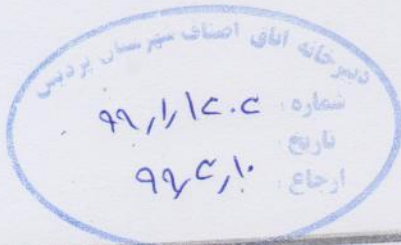 دبیرخانه اتاق اصناف شهرستان پردیس
شماره : ۹۹/۱/۱۲۰۲
تاریخ :
ارجاع : ۹۹/۲/۱۰